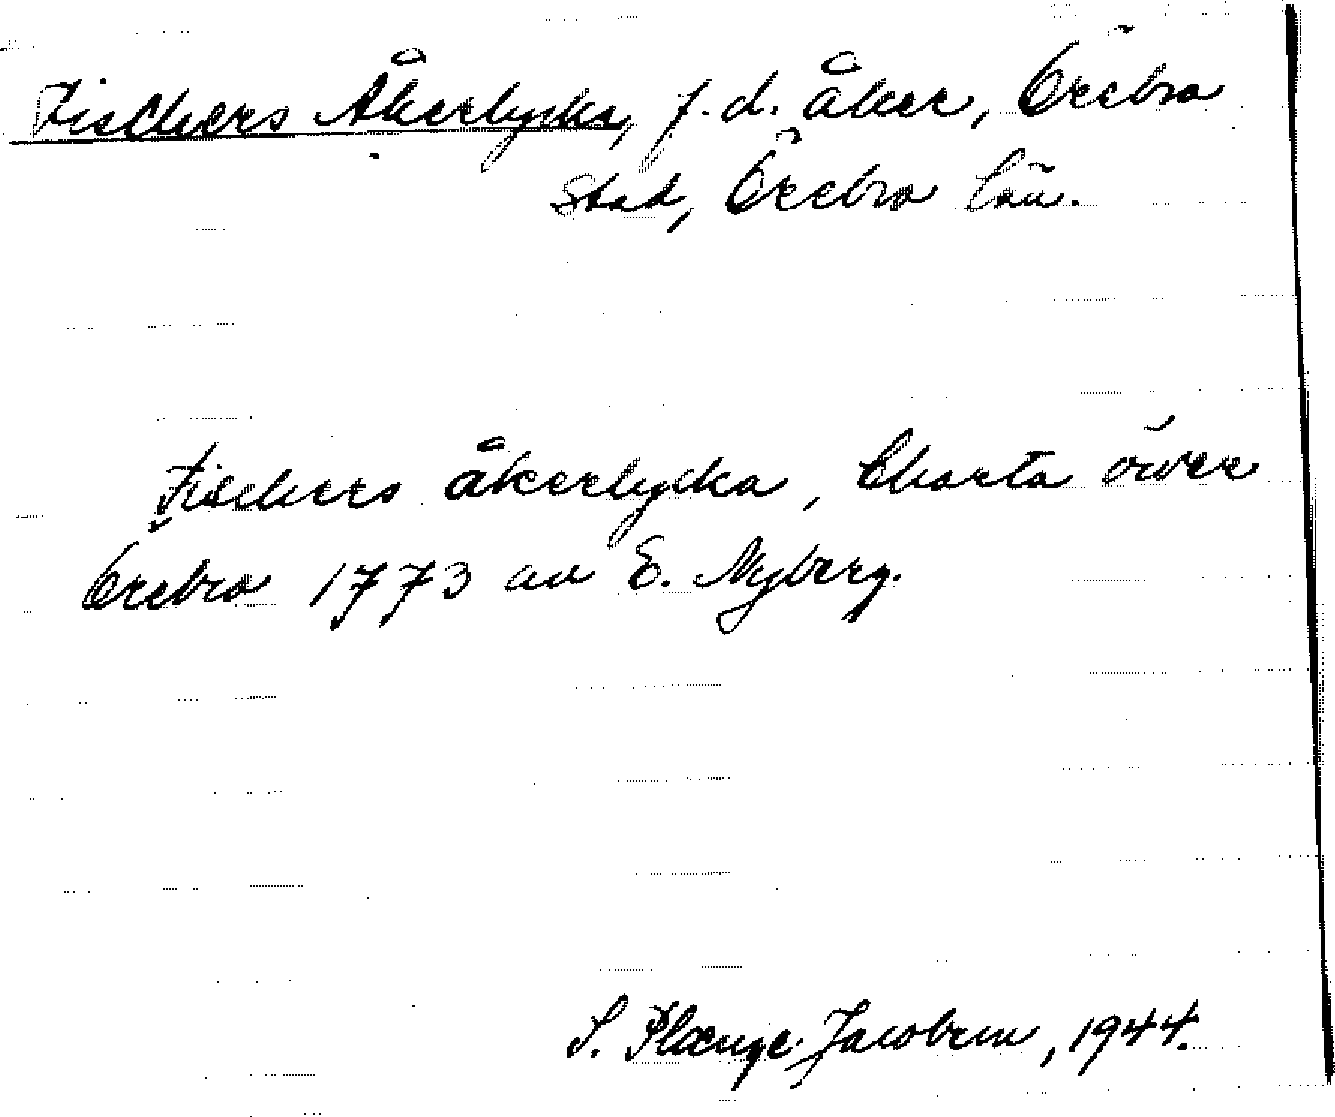 Fischers Åkerlycka, f.d. åker, Örebro
stad, Örebro län.
Fischers åkerlycka, Charta öwer
Örebro 1773 av E. Nyberg.
S. Plænge Jacobson, 1944.